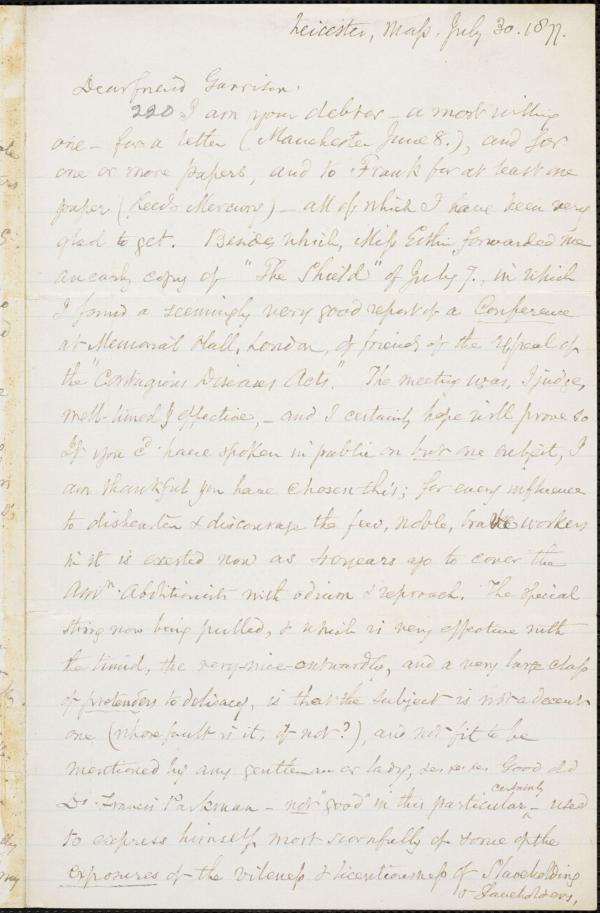 Leicester, Mass. July 30. 1877.
Dear friend Garrison:
220 I am your debtor – a most willing
one – for a letter (Manchester June 8.), and for
one or more papers, and to Frank for at least one
paper (Leeds Mercury) – all of which I have been very
glad to get. Beside, which, Miss forwarded me
an early copy of "The Shield" of July 7., in which
I found a seemingly very good report of a Conference
at Memorial Hall, London, of friends of the repeal of
the "Contagious Diseases Acts." The meeting was, I judge,
well-timed & effective, – and I certainly hope will prove so
If you have spoken in public on but one subject, I
am thankful you have chosen this; for every influence
to dishearten & discourage the few, noble, brave workers
in it is exerted now as 40 years ago to cover the
Amn. Abolitionists with odium & reproach. The special
string now being pulled, & which is very effective with
the timid, the very-nice-outwardly, and a very large class
of pretenders to delicacy, is that the subject is not a decent
one (whose fault is it, if not?), and not fit to be
mentioned by any gentleman or lady, Good old
Dr. Francis Parkman – not "good" in this particular, certainly – used
to express himself most scornfully of some of the
exposures of the vileness & licentiousness of Slaveholding
& Slaveholders,